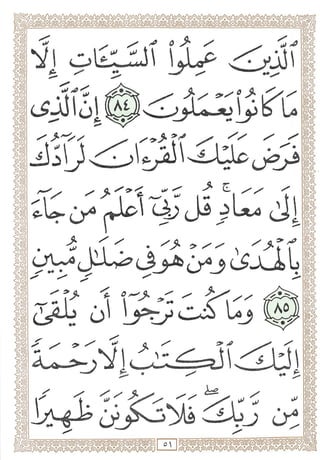 ٱلَّذِينَ عَمِلُوا۟ ٱلسَّيِّـَٔاتِ إِلَّا
مَا كَانُوا۟ يَعْمَلُونَ ٨٤ إِنَّ ٱلَّذِى
فَرَضَ عَلَيْكَ ٱلْقُرْءَانَ لَرَآدُّكَ
إِلَىٰ مَعَادٍۢ ۚ قُل رَّبِّىٓ أَعْلَمُ مَن جَآءَ
بِٱلْهُدَىٰ وَمَنْ هُوَ فِى ضَلَـٰلٍۢ مُّبِينٍۢ
٨٥ وَمَا كُنتَ تَرْجُوٓا۟ أَن يُلْقَىٰٓ
إِلَيْكَ ٱلْكِتَـٰبُ إِلَّا رَحْمَةًۭ
مِّن رَّبِّكَ ۖ فَلَا تَكُونَنَّ ظَهِيرًۭا
٥١